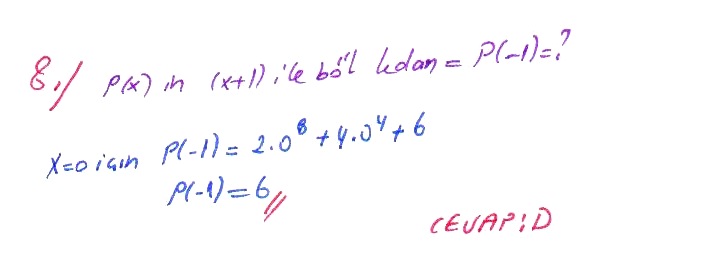 8.) P(x) in (x+1) ile böl kdan = P(-1)=?
x=0 için P(-1) = 2.0⁸ + 4.0⁴ + 6
P(-1) = 6 //
CEVAP: D